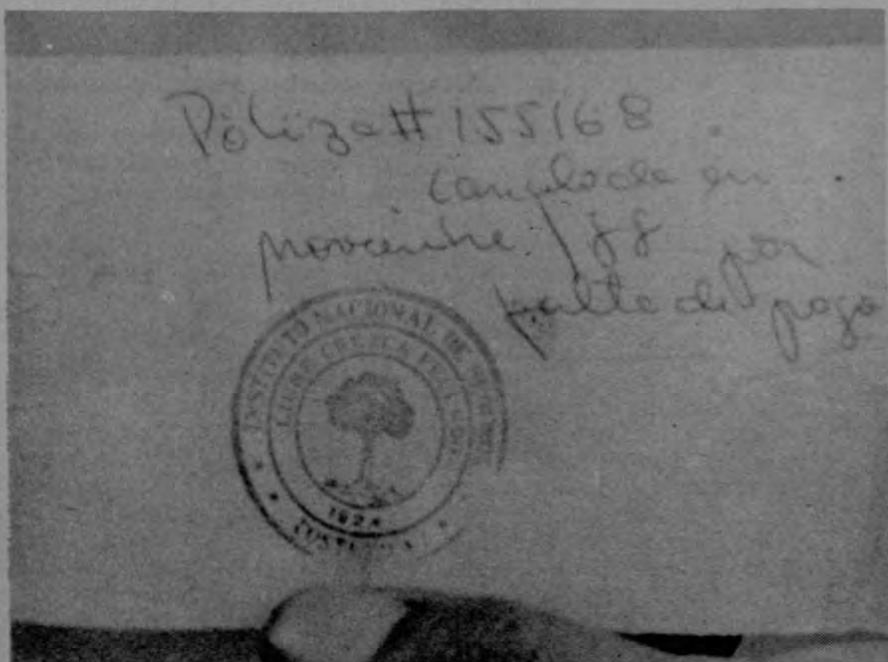 Póliza # 155168
cancelada en
noviembre / 88 por
falta de pago
INSTITUTO NACIONAL DE
LIBRE CREZCA FECUNDO
1924
COSTA RICA